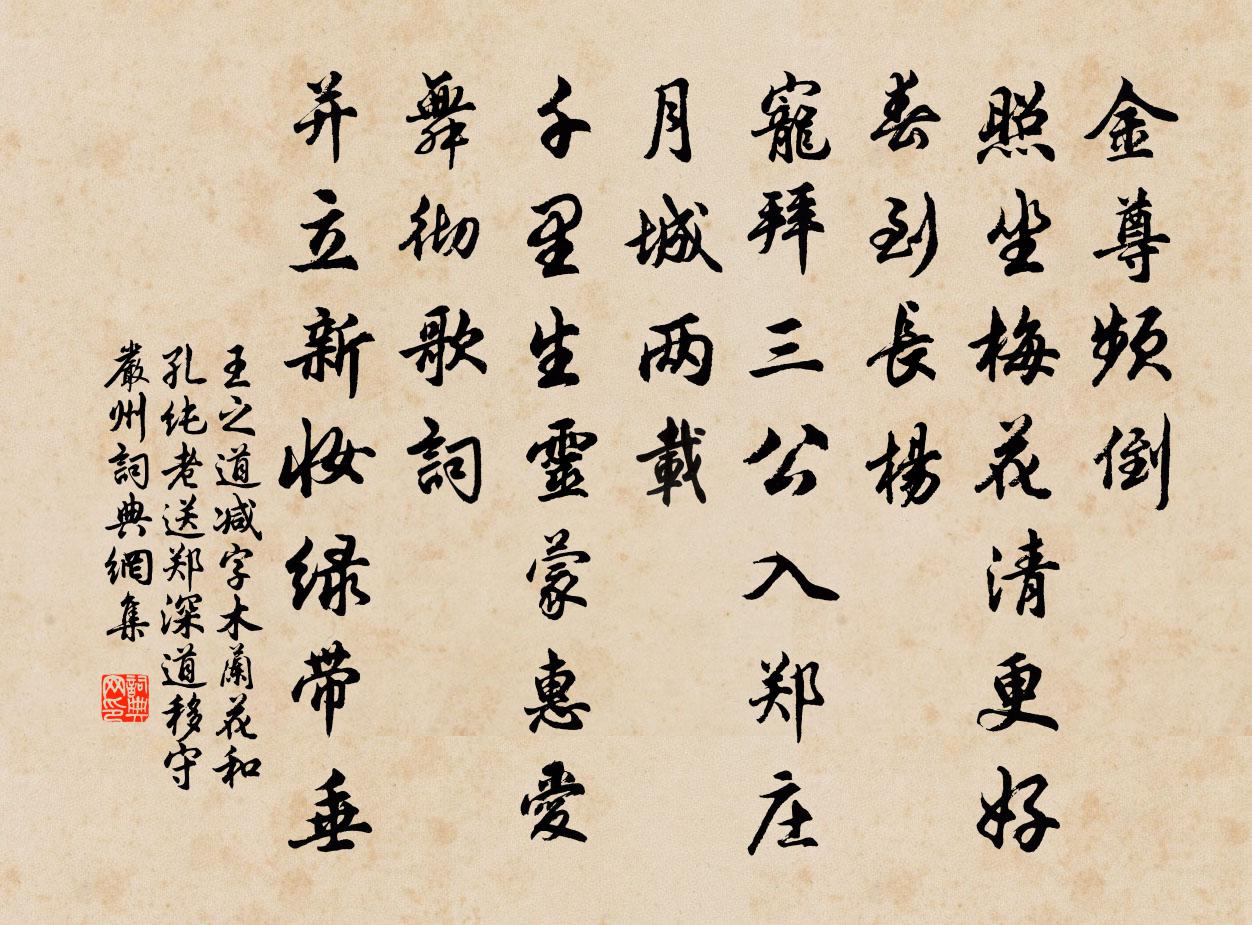 金尊頻倒
照坐梅花清更好
春到長楊
寵拜三公入郑庄
月城两載
千里生靈蒙惠愛
舞彻歌詞
并立新妆绿带垂
王之道减字木蘭花和
孔纯老送郑深道移守
嚴州詞典網集
詞典网印